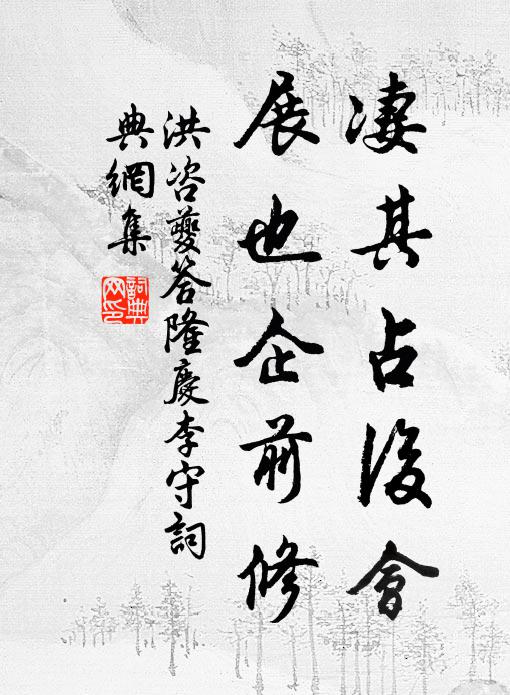 凄其占後會
展也企前修
洪咨夔答隆慶李守詞
典網集
詞典網印